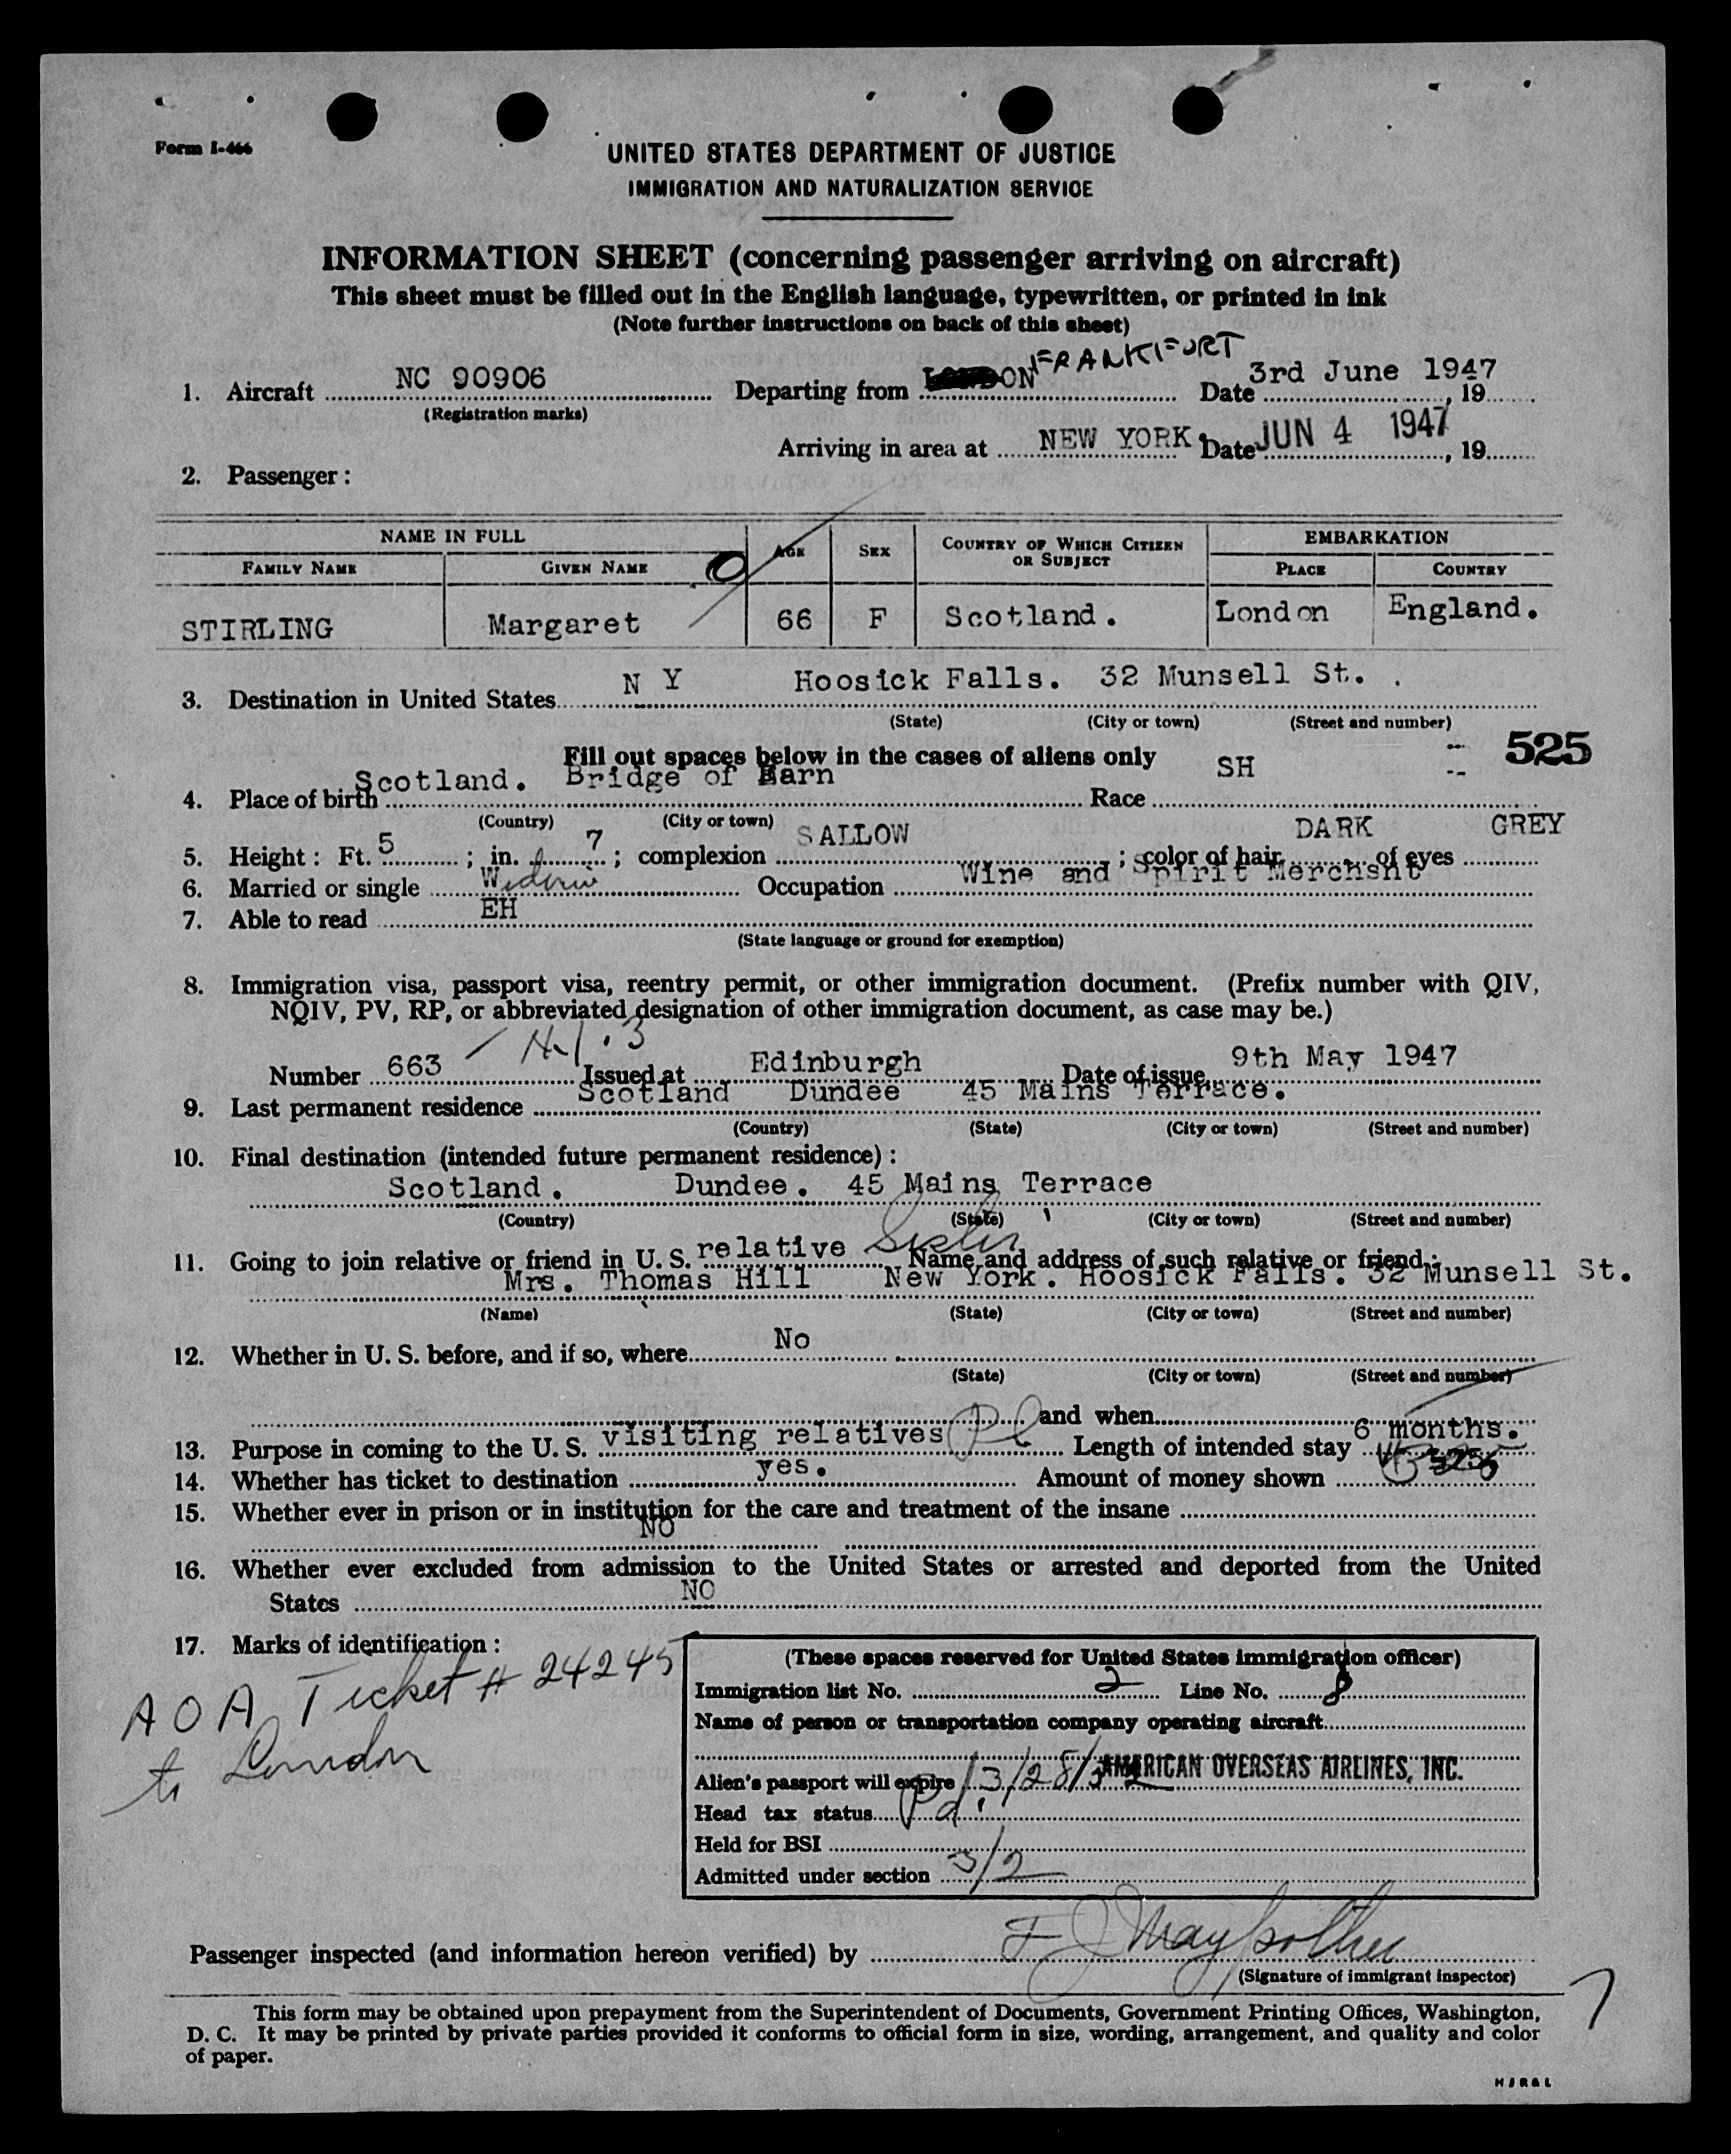 Form I-466
UNITED STATES DEPARTMENT OF JUSTICE
IMMIGRATION AND NATURALIZATION SERVICE
INFORMATION SHEET (concerning passenger arriving on aircraft)
This sheet must be filled out in the English language, typewritten, or printed in ink
(Note further instructions on back of this sheet)
1. Aircraft NC 90906 Departing from LONDON FRANKFORT Date 3rd June 1947, 19
(Registration marks)
Arriving in area at NEW YORK. Date JUN 4 1947, 19
2. Passenger:
NAME IN FULL AGE SEX COUNTRY OF WHICH CITIZEN OR SUBJECT EMBARKATION
FAMILY NAME GIVEN NAME PLACE COUNTRY
STIRLING Margaret 66 F Scotland. London England.
3. Destination in United States N Y Hoosick Falls. 32 Munsell St. .
(State) (City or town) (Street and number)
Fill out spaces below in the cases of aliens only 525
4. Place of birth Scotland. Bridge of Earn Race SH
(Country) (City or town)
5. Height: Ft. 5; in. 7; complexion SALLOW; color of hair DARK of eyes GREY
6. Married or single Widow Occupation Wine and Spirit Merchsnt
7. Able to read EH
(State language or ground for exemption)
8. Immigration visa, passport visa, reentry permit, or other immigration document. (Prefix number with QIV,
NQIV, PV, RP, or abbreviated designation of other immigration document, as case may be.)
Number 663 Issued at Edinburgh Date of issue 9th May 1947
9. Last permanent residence Scotland Dundee 45 Mains Terrace.
(Country) (State) (City or town) (Street and number)
10. Final destination (intended future permanent residence):
Scotland. Dundee. 45 Mains Terrace
(Country) (State) (City or town) (Street and number)
11. Going to join relative or friend in U. S. relative Sister Name and address of such relative or friend:
Mrs. Thomas Hill New York. Hoosick Falls. 32 Munsell St.
(Name) (State) (City or town) (Street and number)
12. Whether in U. S. before, and if so, where No
(State) (City or town) (Street and number)
and when
13. Purpose in coming to the U. S. visiting relatives Length of intended stay 6 months.
14. Whether has ticket to destination yes. Amount of money shown
15. Whether ever in prison or in institution for the care and treatment of the insane
NO
16. Whether ever excluded from admission to the United States or arrested and deported from the United
States NO
17. Marks of identification:
AOA Ticket # 24245
to London
(These spaces reserved for United States immigration officer)
Immigration list No. 2 Line No. 8
Name of person or transportation company operating aircraft
AMERICAN OVERSEAS AIRLINES, INC.
Alien's passport will expire
Head tax status Pd.
Held for BSI
Admitted under section 3/2
Passenger inspected (and information hereon verified) by
(Signature of immigrant inspector)
7
This form may be obtained upon prepayment from the Superintendent of Documents, Government Printing Offices, Washington,
D. C. It may be printed by private parties provided it conforms to official form in size, wording, arrangement, and quality and color
of paper.